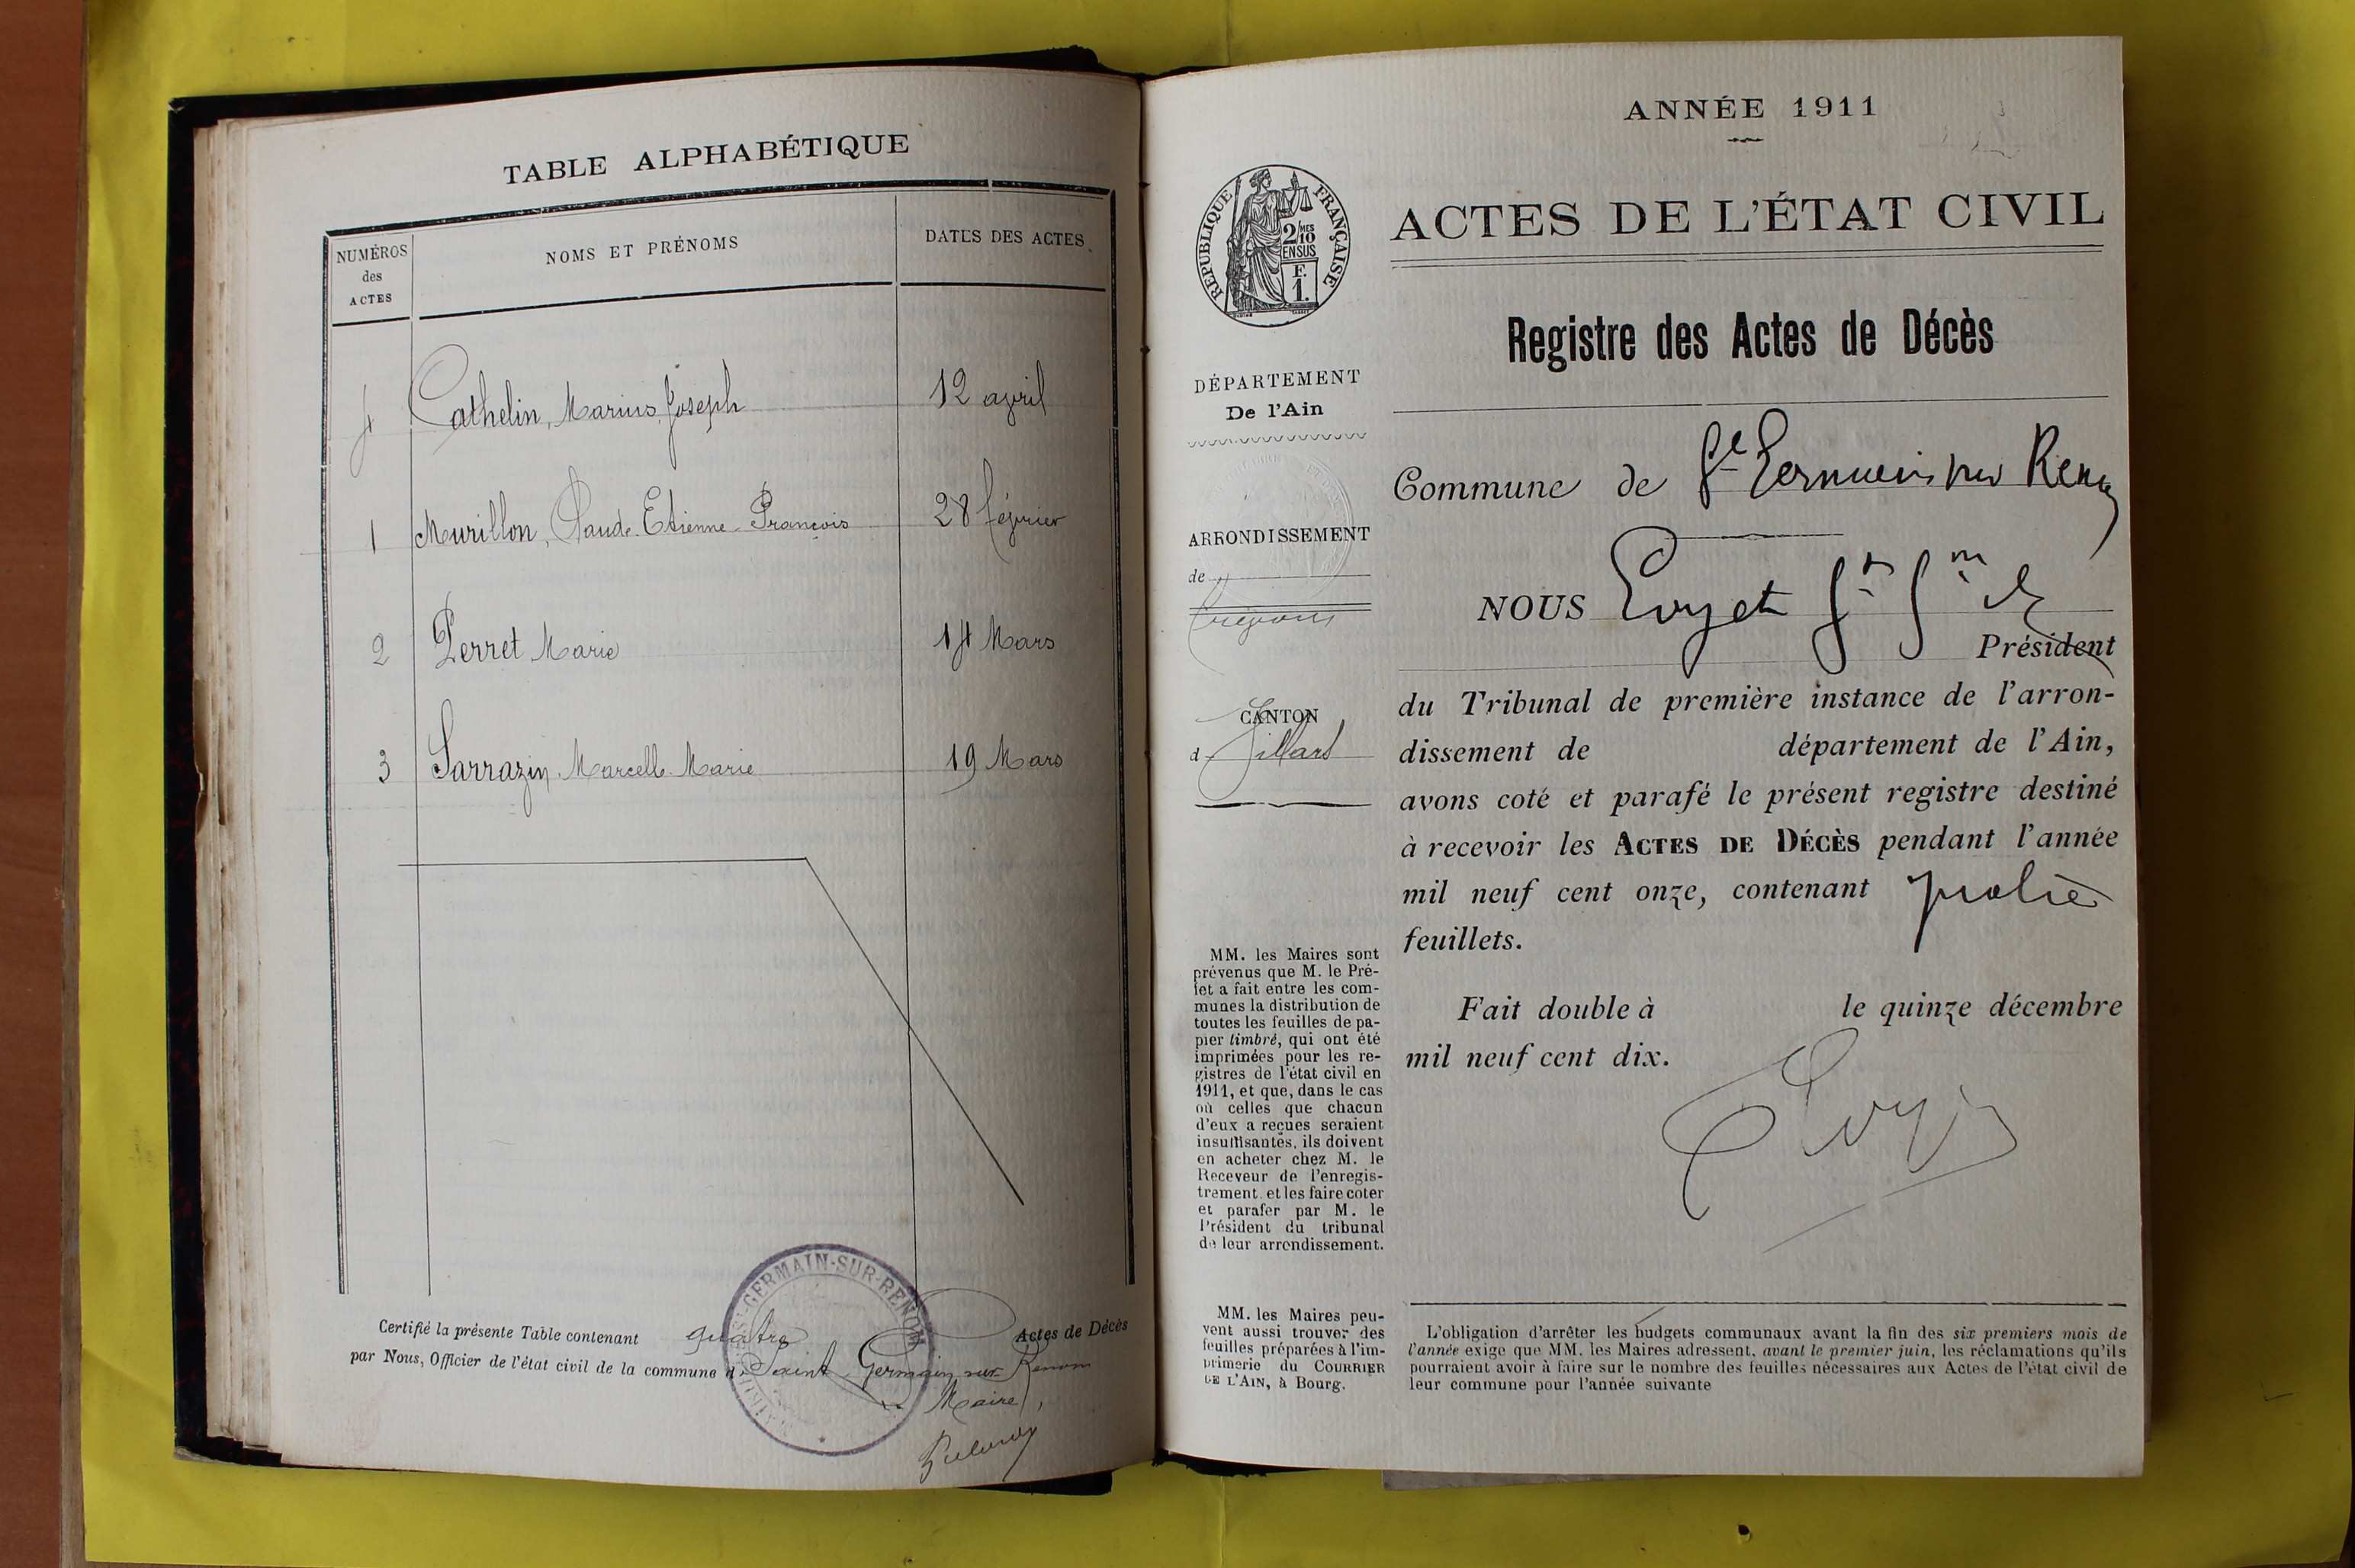 TABLE ALPHABÉTIQUE
NUMÉROS
des
ACTES
NOMS ET PRÉNOMS
DATES DES ACTES
4 Cathelin, Marius Joseph 12 avril
1 Murillon, Claude Etienne François 28 février
2 Perret Marie 14 Mars
3 Sarrazin Marcelle Marie 19 Mars
Certifié la présente Table contenant quatre Actes de Décès
par Nous, Officier de l'état civil de la commune d Saint Germain sur Renom
Maire,
ST-GERMAIN-SUR-RENOM
ANNÉE 1911
RÉPUBLIQUE FRANÇAISE
2/10 MES
EN SUS
F.
1.
ACTES DE L'ÉTAT CIVIL
Registre des Actes de Décès
DÉPARTEMENT
De l'Ain
ARRONDISSEMENT
de
Trévoux
CANTON
d Villars
Commune de St Germain sur Renom
NOUS
Président
du Tribunal de première instance de l'arron-
dissement de département de l'Ain,
avons coté et parafé le présent registre destiné
à recevoir les ACTES DE DÉCÈS pendant l'année
mil neuf cent onze, contenant
feuillets.
Fait double à le quinze décembre
mil neuf cent dix.
MM. les Maires sont
prévenus que M. le Pré-
fet a fait entre les com-
munes la distribution de
toutes les feuilles de pa-
pier timbré, qui ont été
imprimées pour les re-
gistres de l'état civil en
1911, et que, dans le cas
où celles que chacun
d'eux a reçues seraient
insuffisantes, ils doivent
en acheter chez M. le
Receveur de l'enregis-
trement, et les faire coter
et parafer par M. le
Président du tribunal
de leur arrondissement.
MM. les Maires peu-
vent aussi trouver des
feuilles préparées à l'im-
primerie du COURRIER
DE L'AIN, à Bourg.
L'obligation d'arrêter les budgets communaux avant la fin des six premiers mois de
l'année exige que MM. les Maires adressent, avant le premier juin, les réclamations qu'ils
pourraient avoir à faire sur le nombre des feuilles nécessaires aux Actes de l'état civil de
leur commune pour l'année suivante